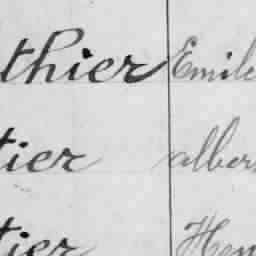 thier Emile
tier alber
tier Hen